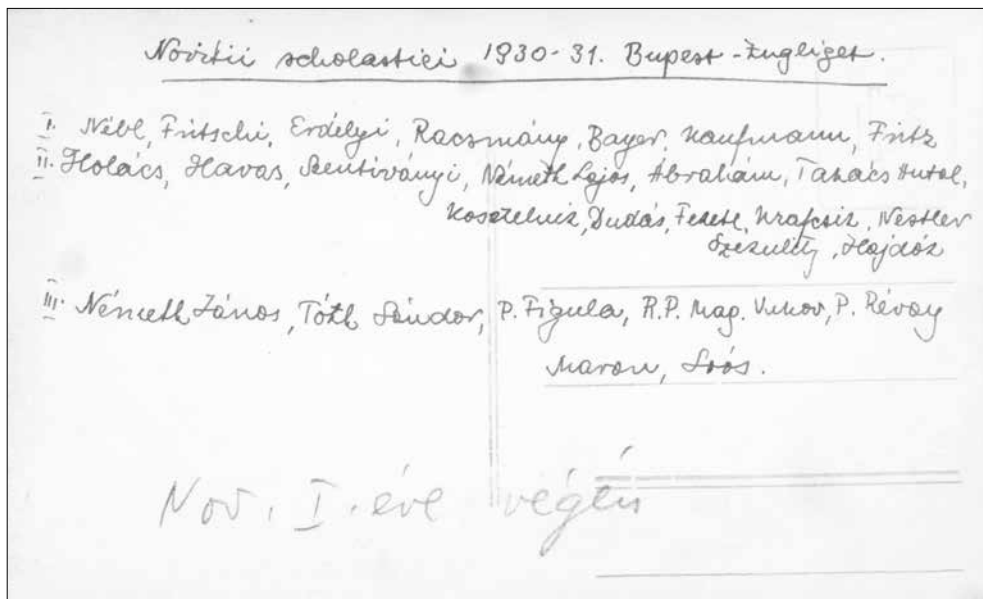 Novitii scholastici 1930-31. Bupest-Zugliget.
I. Nébl, Fritschi, Erdélyi, Racsmány, Bayer, Kaufmann, Fritz
II. Holács, Havas, Szentiványi, Németh Lajos, Ábrahám, Takács Antal,
Kosztelnik, Dudás, Fekete, Krafcsik, Nestler
Hajdók
III. Németh János, Tóth Sándor, P. Figula, R.P. Mag. Vukov, P. Révay
Maron, Soós.
Nov. I. éve végén